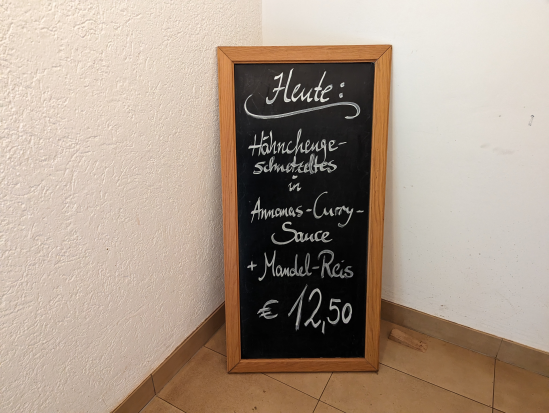 Heute:
Hähnchenge-
schnetzeltes
in
Annanas-Curry-
Sauce
+ Mandel-Reis
€ 12,50